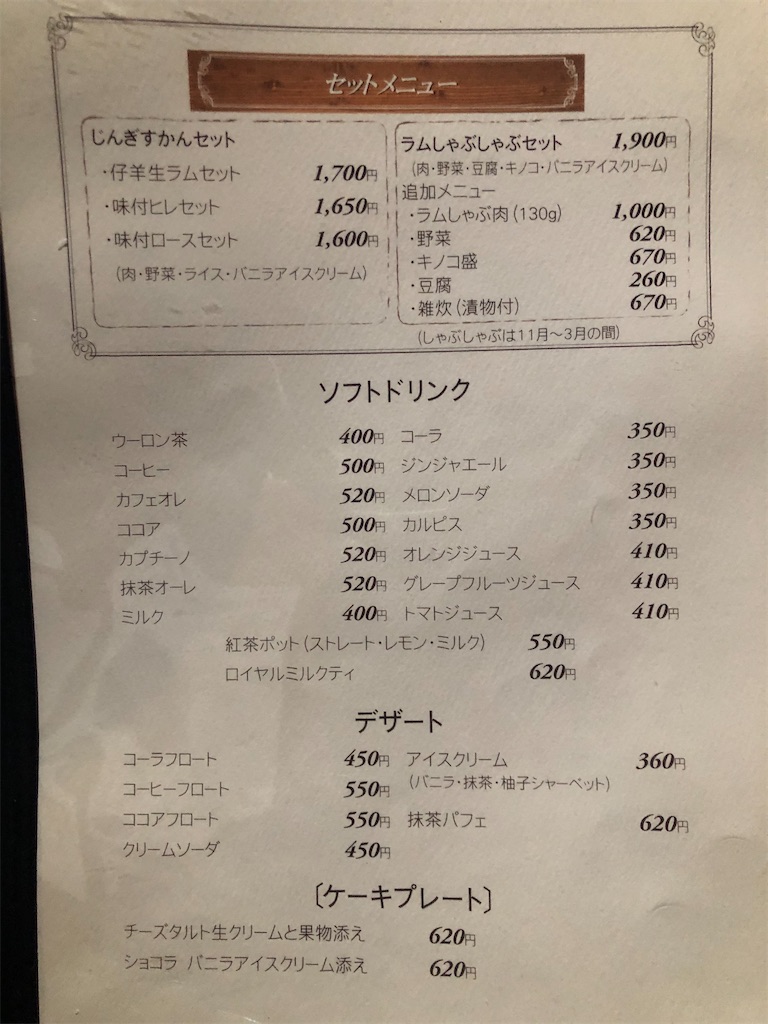 セットメニュー
じんぎすかんセット
・仔羊生ラムセット 1,700円
・味付ヒレセット 1,650円
・味付ロースセット 1,600円
(肉・野菜・ライス・バニラアイスクリーム)
ラムしゃぶしゃぶセット 1,900円
(肉・野菜・豆腐・キノコ・バニラアイスクリーム)
追加メニュー
・ラムしゃぶ肉(130g) 1,000円
・野菜 620円
・キノコ盛 670円
・豆腐 260円
・雑炊(漬物付) 670円
(しゃぶしゃぶは11月～3月の間)
ソフトドリンク
ウーロン茶 400円 コーラ 350円
コーヒー 500円 ジンジャエール 350円
カフェオレ 520円 メロンソーダ 350円
ココア 500円 カルピス 350円
カプチーノ 520円 オレンジジュース 410円
抹茶オーレ 520円 グレープフルーツジュース 410円
ミルク 400円 トマトジュース 410円
紅茶ポット(ストレート・レモン・ミルク) 550円
ロイヤルミルクティ 620円
デザート
コーラフロート 450円 アイスクリーム 360円
コーヒーフロート 550円 (バニラ・抹茶・柚子シャーベット)
ココアフロート 550円 抹茶パフェ 620円
クリームソーダ 450円
〔ケーキプレート〕
チーズタルト生クリームと果物添え 620円
ショコラ バニラアイスクリーム添え 620円